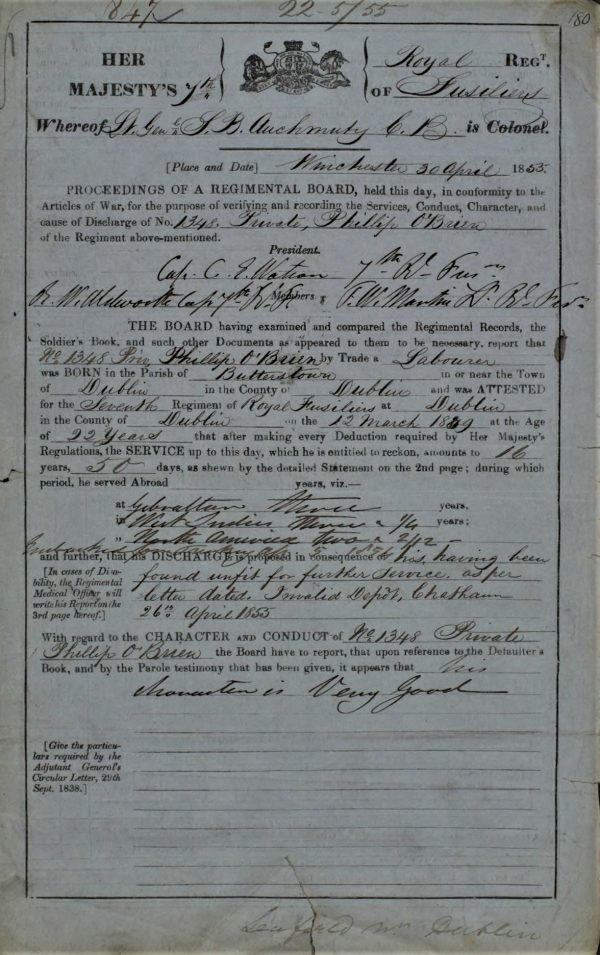 847 22-5/55 180
HER Royal REGT.
MAJESTY'S 7th OF Fusiliers
Whereof Lt. Genl S. B. Auchmuty C. B. is Colonel.
[Place and Date] Winchester 30 April 1855.
PROCEEDINGS OF A REGIMENTAL BOARD, held this day, in conformity to the
Articles of War, for the purpose of verifying and recording the Services, Conduct, Character, and
cause of Discharge of No. 1348 Private, Phillip O'Brien
of the Regiment above-mentioned.
President.
Cap. C. E. Watson 7th Rl. Fusrs
R. W. Aldworth Cap 7th R. F. Members F. W. Martin Lt. Rl. Fusrs
THE BOARD having examined and compared the Regimental Records, the
Soldier's Book, and such other Documents as appeared to them to be necessary, report that
No 1348 Priv Phillip O'Brien by Trade a Labourer
was BORN in the Parish of Butterstown in or near the Town
of Dublin in the County of Dublin and was ATTESTED
for the Seventh Regiment of Royal Fusiliers at Dublin
in the County of Dublin on the 12 March 1839 at the Age
of 22 Years that after making every Deduction required by Her Majesty's
Regulations, the SERVICE up to this day, which he is entitled to reckon, amounts to 16
years, 50 days, as shewn by the detailed Statement on the 2nd page; during which
period, he served Abroad years, viz.—
at Gibraltar three years,
in West Indies three & 1/4 years;
„ North America two & 2/12
and further, that his DISCHARGE is proposed in consequence of his having been
[In cases of Disability, the Regimental Medical Officer will write his Report on the 3rd page hereof.]
found unfit for further service, as per
letter dated Invalid Depôt, Chatham
26th April 1855
With regard to the CHARACTER AND CONDUCT of No 1348 Private
Phillip O'Brien the Board have to report, that upon reference to the Defaulter's
Book, and by the Parole testimony that has been given, it appears that his
Character is Very Good
[Give the particu-
lars required by the
Adjutant General's
Circular Letter, 29th
Sept. 1838.]
Dublin